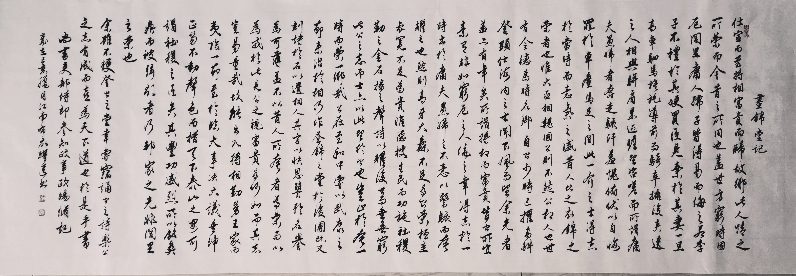 晝錦堂記
仕宦而至將相富貴而歸故鄉此人情之
所榮而今昔之所同也蓋士方窮時困
阨閭里庸人孺子皆得易而侮之若季
子不禮於其嫂買臣見棄於其妻一旦
高車駟馬旗旄導前而騎卒擁後夾道
之人相與駢肩累迹瞻望咨嗟而所謂庸
夫愚婦者奔走駭汗羞愧俯伏以自悔
罪於車塵馬足之間此一介之士得志
於當時而意氣之盛昔人比之衣錦之
榮者也惟大丞相魏國公則不然公相人也世
有令德為時名卿自公少時已擢高科
登顯仕海內之士聞下風而望餘光者
蓋亦有年矣所謂將相而富貴皆公所宜
素有非如窮阨之人僥倖得志於一
時出於庸夫愚婦之不意以驚駭而夸
耀之也然則高牙大纛不足為公榮桓圭
袞冕不足為公貴惟德被生民而功施社稷
勒之金石播之聲詩以耀後世而垂無窮
此公之志而士亦以此望於公也豈止夸一
時而榮一鄉哉公在至和中嘗以武康之
節來治於相乃作晝錦之堂於後圃既又
刻詩於石以遺相人其言以快恩讎矜名譽
為可薄蓋不以昔人所夸者為榮而以
為戒於此見公之視富貴為何如而其志
豈易量哉故能出入將相勤勞王家而
夷險一節至於臨大事決大議垂紳
正笏不動聲色而措天下於泰山之安可
謂社稷之臣矣其豐功盛烈所以銘彝
鼎而被弦歌者乃邦家之光非閭里
之榮也
余雖不獲登公之堂幸嘗竊誦公之詩樂公
之志有成而喜為天下道也於是乎書
尚書吏部侍郎參知政事歐陽脩記